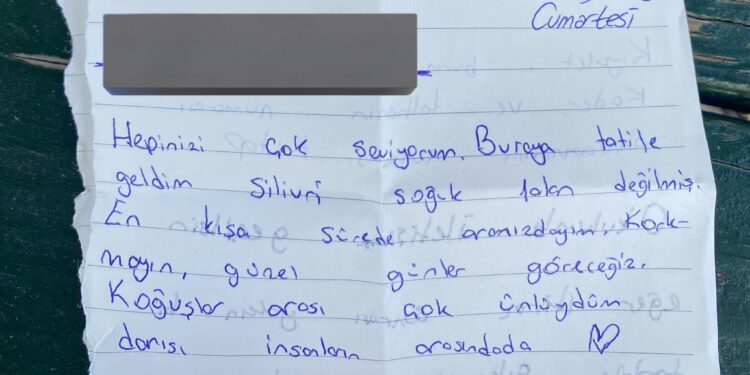 Cumartesi
Hepinizi çok seviyorum. Buraya tatile
geldim Silivri soğuk falan değilmiş.
En kısa sürede aranızdayım. Kork-
mayın, güzel günler göreceğiz.
Koğuşlar arası çok ünlüydüm
darısı insanların arasındada